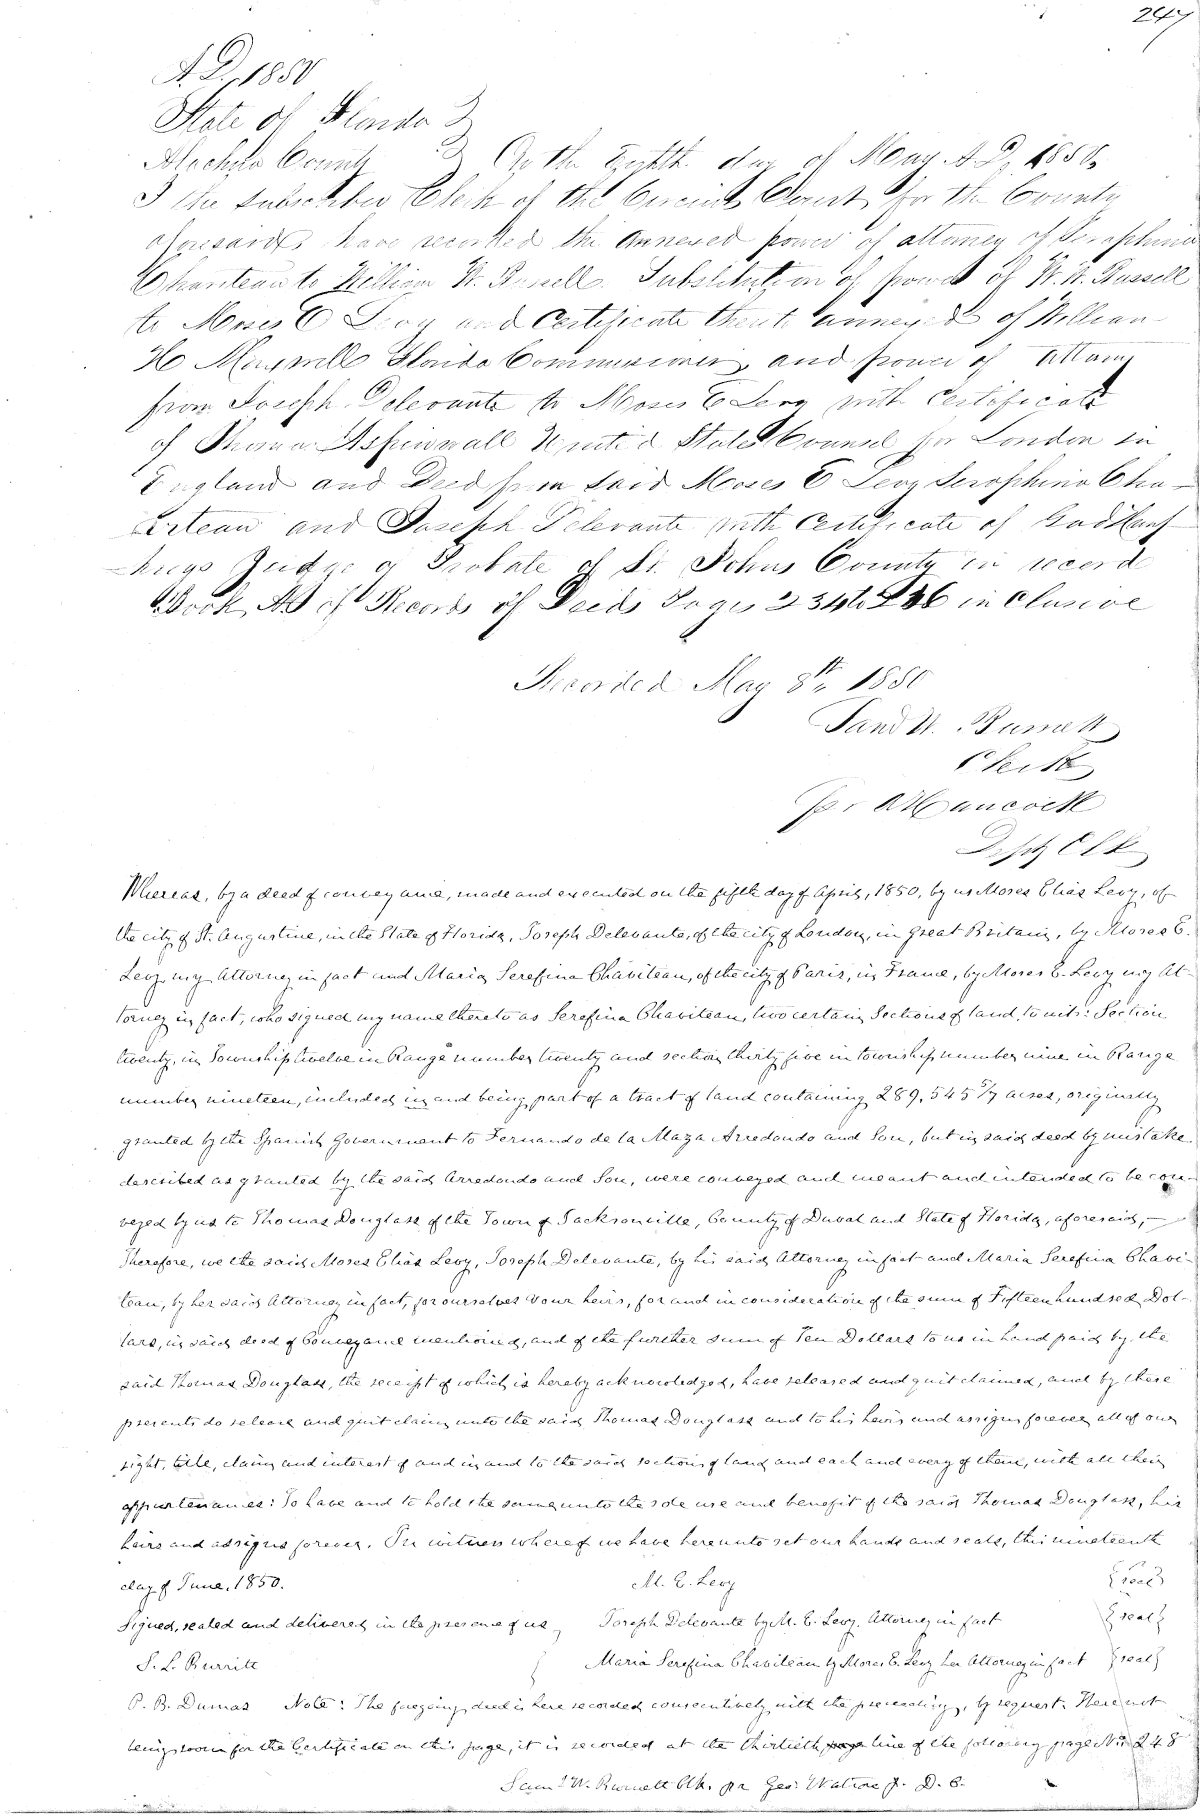 247
A.D. 1850
State of Florida
Alachua County On the Eighth day of May A.D. 1850,
I the subscriber Clerk of the Circuit Court for the County
aforesaid, have recorded the annexed power of attorney of Seraphina
Chauiteau to William W. Russell. Substitution of power of W. W. Russell
to Moses E Levy and Certificate thereto annexed of William
H Maxwell Florida Commissioner, and power of attorney
from Joseph Delevante to Moses E Levy with certificate
of Thomas Aspinwall United States Counsel for London in
England and Deed from said Moses E Levy Seraphina Cha-
uiteau and Joseph Delevante with Certificate of Gad Hum-
-phreys Judge of Probate of St. Johns County in record
Book A of Records of Deeds Pages 234 to 246 inclusive
Recorded May 8th, 1850
Saml W. Burnett
Clerk
pr Hancock
Depty Clk
Whereas, by a deed of conveyance, made and executed on the fifth day of April, 1850, by us Moses Elias Levy, of
the city of St. Augustine, in the State of Florida, Joseph Delevante, of the city of London, in Great Britain, by Moses E.
Levy, my Attorney in fact and Maria Serefina Chaviteau, of the city of Paris, in France, by Moses E. Levy my At-
torney in fact, who signed my name thereto as Serefina Chaviteau, two certain Sections of land, to wit: Section
twenty, in Township twelve in Range number twenty and section thirty five in township number nine in Range
number nineteen, included in and being part of a tract of land containing 289,545 5/7 acres, originally
granted by the Spanish Government to Fernando de la Maza Arredondo and Son, but in said deed by mistake
described as granted by the said Arredondo and Son, were conveyed and meant and intended to be con-
veyed by us to Thomas Douglass of the Town of Jacksonville, County of Duval and State of Florida, aforesaid,—
Therefore, we the said Moses Elias Levy, Joseph Delevante, by his said Attorney in fact and Maria Serefina Chavi-
teau, by her said Attorney in fact, for ourselves & our heirs, for and in consideration of the sum of Fifteen hundred Dol-
lars, in said deed of Conveyance mentioned, and of the further sum of Ten Dollars to us in hand paid by the
said Thomas Douglass, the receipt of which is hereby acknowledged, have released and quit claimed, and by these
presents do release and quit claim unto the said Thomas Douglass and to his heirs and assigns forever all of our
right, title, claim and interest of and in and to the said sections of land and each and every of them, with all their
appurtenances: To have and to hold the same unto the sole use and benefit of the said Thomas Douglass, his
heirs and assigns forever. In witness whereof we have hereunto set our hands and seals, this nineteenth
day of June, 1850. M. E. Levy {seal}
Signed, sealed and delivered in the presence of us, Joseph Delevante by M. E. Levy, Attorney in fact {seal}
S. L. Burritt Maria Serefina Chaviteau by Moses E. Levy her Attorney in fact {seal}
P. B. Dumas Note: The foregoing deed is here recorded consecutively with the preceeding, by request. There not
being room for the Certificate on this page, it is recorded at the thirtieth line of the following page No. 248
Saml W. Burnett Clk. pr Geo: D. C.